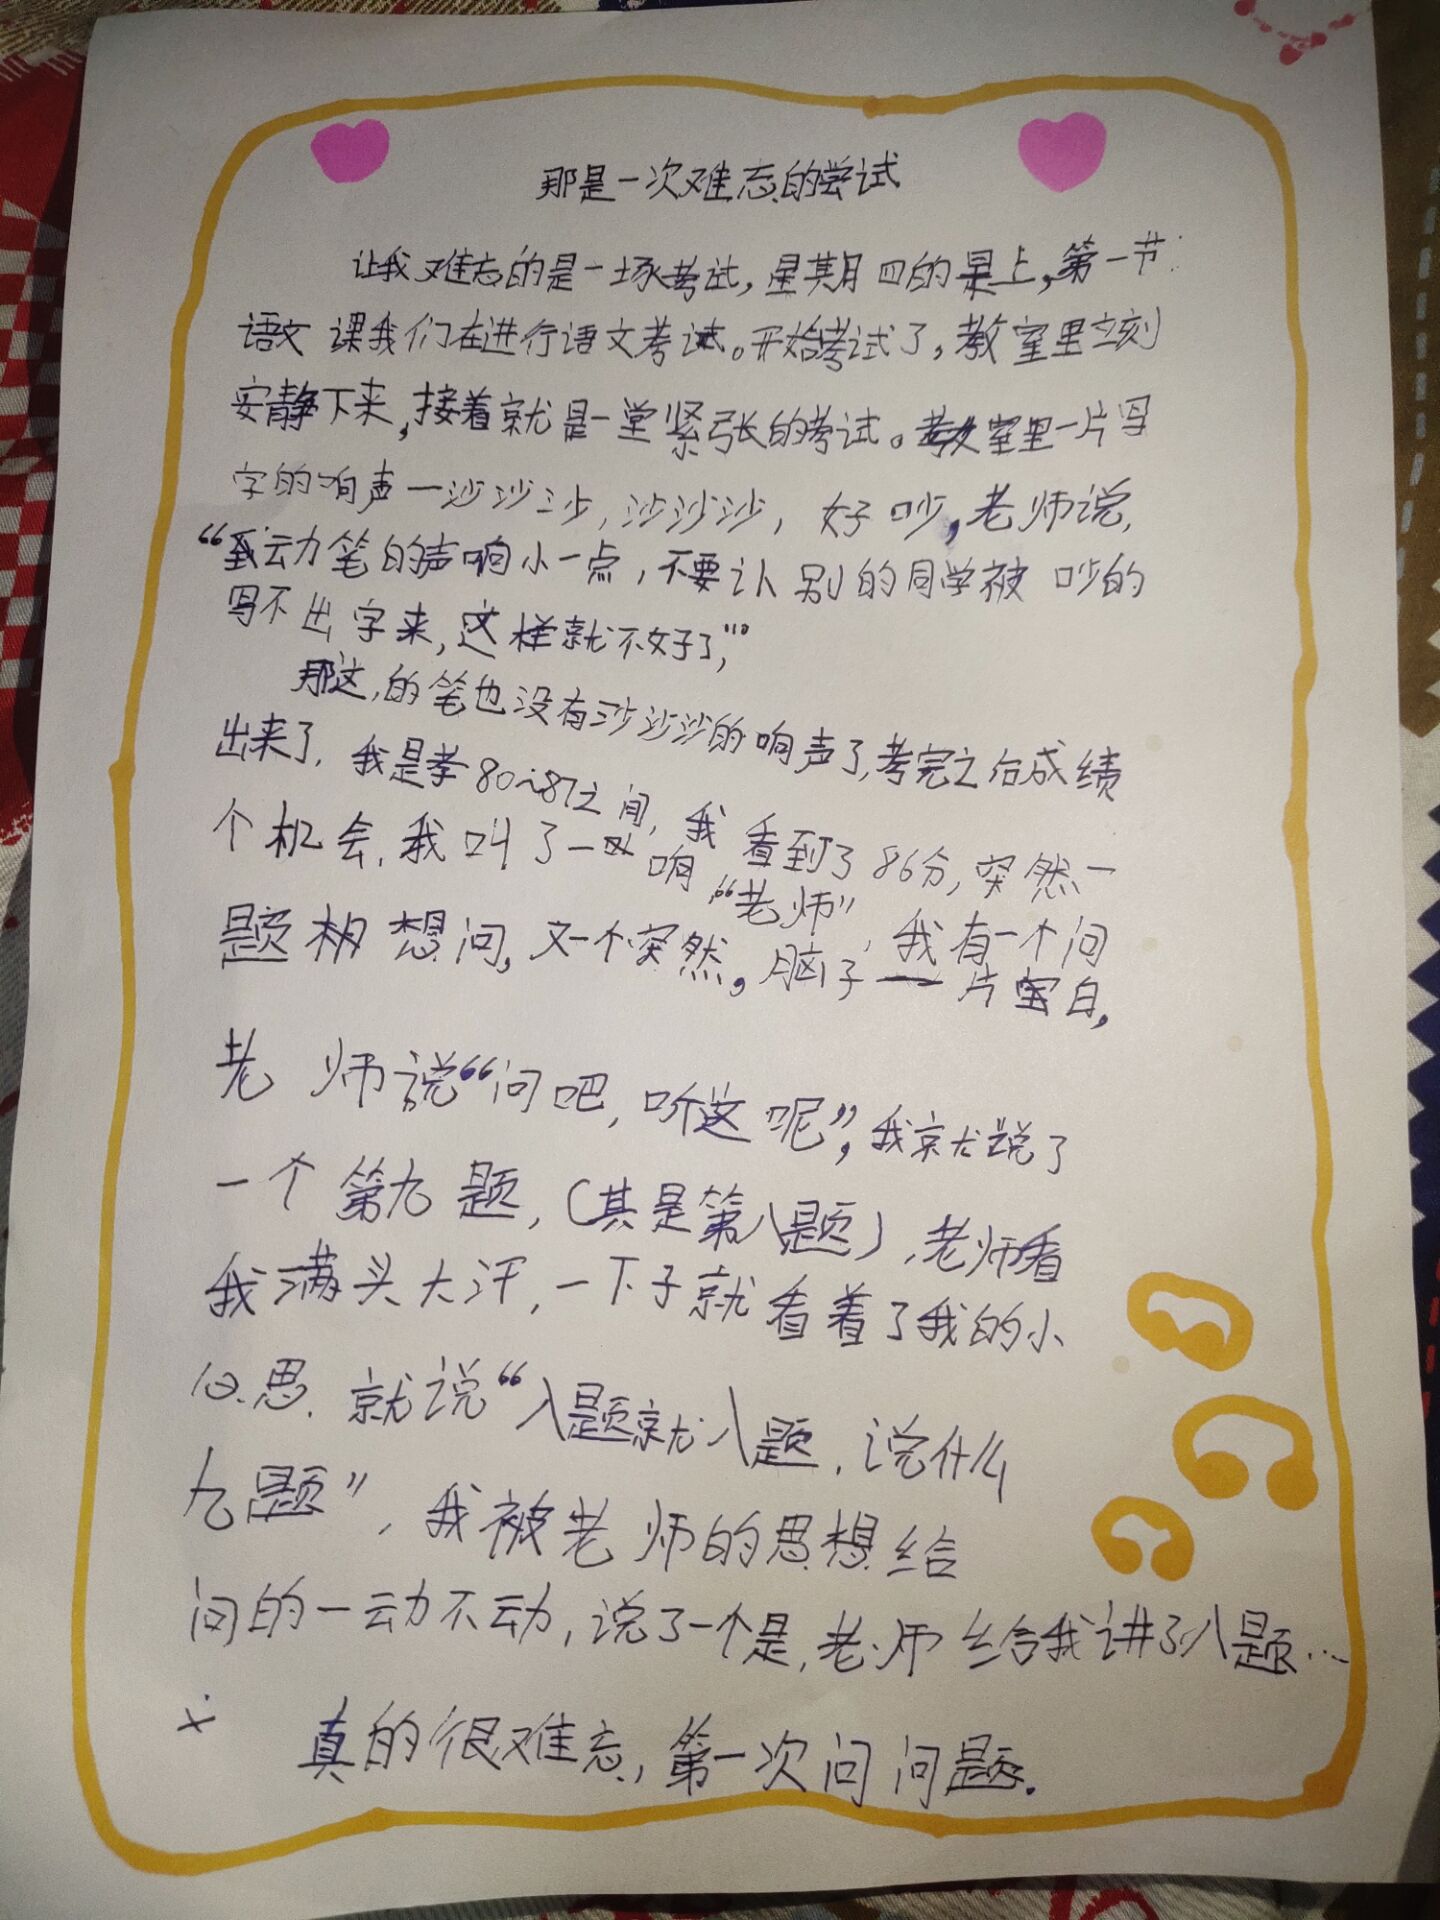 那是一次难忘的尝试
让我难忘的是一场考试，星期四的早上，第一节
语文课我们在进行语文考试。开始考试了，教室里立刻
安静下来，接着就是一堂紧张的考试。教室里一片写
字的响声一沙沙沙，沙沙沙，好吵，老师说，
“动笔的声响小一点，不要让别的同学被吵的
写不出字来，这样就不好了，”
那这，的笔也没有沙沙沙的响声了，考完之后成绩
出来了，我是考80~87之间，我看到了86分，突然一
个机会，我叫了一响“老师”，我有一个问
题想问，又一个突然。脑子一片空白，
老师说“问吧，听这呢”，我就说了
一个第九题，（其是第八题），老师看
我满头大汗，一下子就看着了我的小
思，就说“八题就八题，说什么
九题”，我被老师的思想给
问的一动不动，说了一个是，老师给我讲了八题…
真的很难忘，第一次问问题.